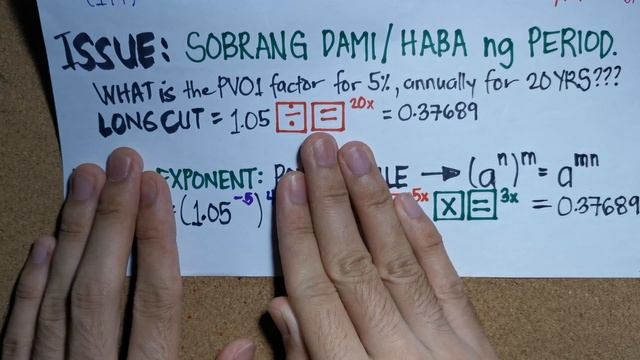 ISSUE: SOBRANG DAMI/HABA ng PERIOD.
WHAT is the PVO1 factor for 5%, annually for 20 YRS???
LONG CUT = 1.05 ÷ = 20x = 0.37689
EXPONENT: → (aⁿ)ᵐ = aᵐⁿ
(1.05⁻⁵) 5x x = 3x = 0.37689